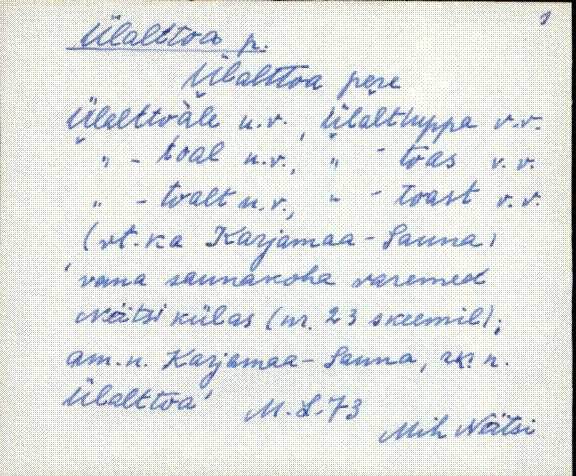 Ülalttoa p.
Ülalttoa pere
Ülalttoàle u.v., Ülalt'tuppa v.v.
" - toal u.v., " - toas v.v.
" - toalt u.v., " - toast v.v.
(vt. ka Karjamaa-Sauna)
'vana saunakoha varemed
Nätsi külas (nr. 23 skeemil);
am.n. Karjamaa-Sauna, rk. n.
Ülalttoa'
M.L-73
Mih Nätsi